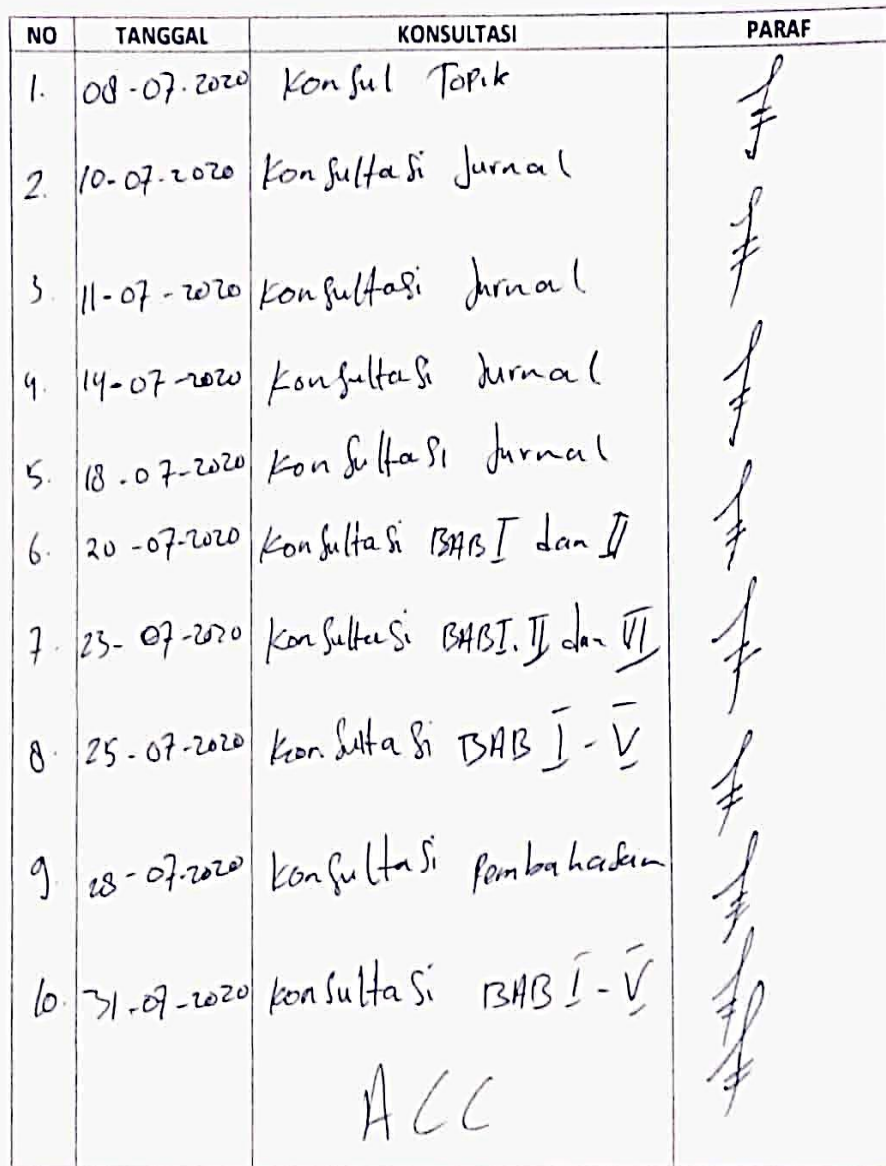 NO TANGGAL KONSULTASI PARAF
1. 08-07-2020 Konsul Topik
2. 10-07-2020 Konsultasi Jurnal
3. 11-07-2020 Konsultasi Jurnal
4. 14-07-2020 Konsultasi Jurnal
5. 18-07-2020 Konsultasi Jurnal
6. 20-07-2020 Konsultasi BAB I dan II
7. 23-07-2020 Konsultasi BAB I. II dan VI
8. 25-07-2020 Konsultasi BAB I - V
9. 28-07-2020 Konsultasi Pembahasan
10. 31-07-2020 Konsultasi BAB I - V
ACC